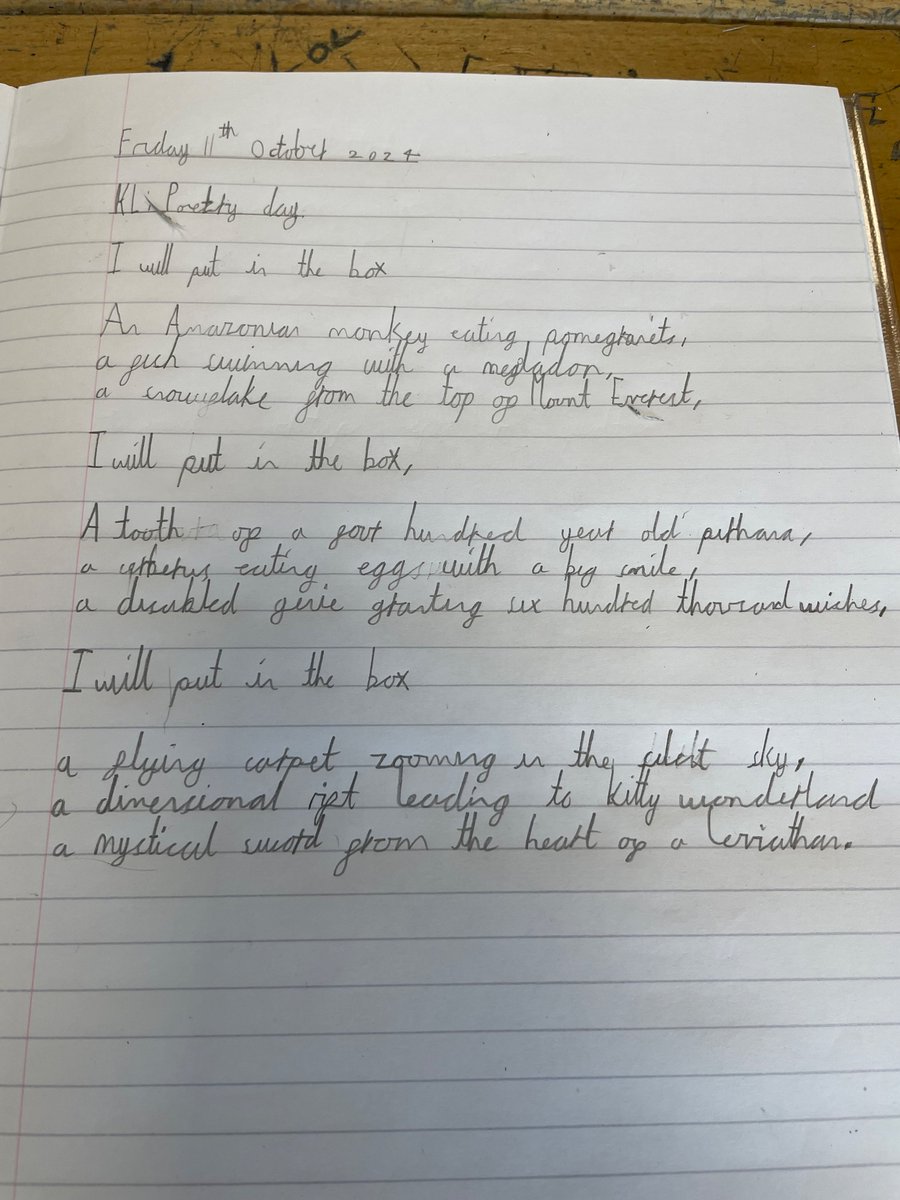 Friday 11th October 2024
KL: Poetry day.
I will put in the box
An Amazonian monkey eating pomegranets,
a fish swimming with a megladon,
a snowflake from the top of Mount Everest,
I will put in the box,
A tooth of a four hundred year old pirhana,
a cerberus eating eggs with a big smile,
a disabled genie granting six hundred thousand wishes,
I will put in the box
a flying carpet zooming in the sky,
a dimensional rift leading to kitty wonderland
a mystical sword from the heart of a Leviathan.